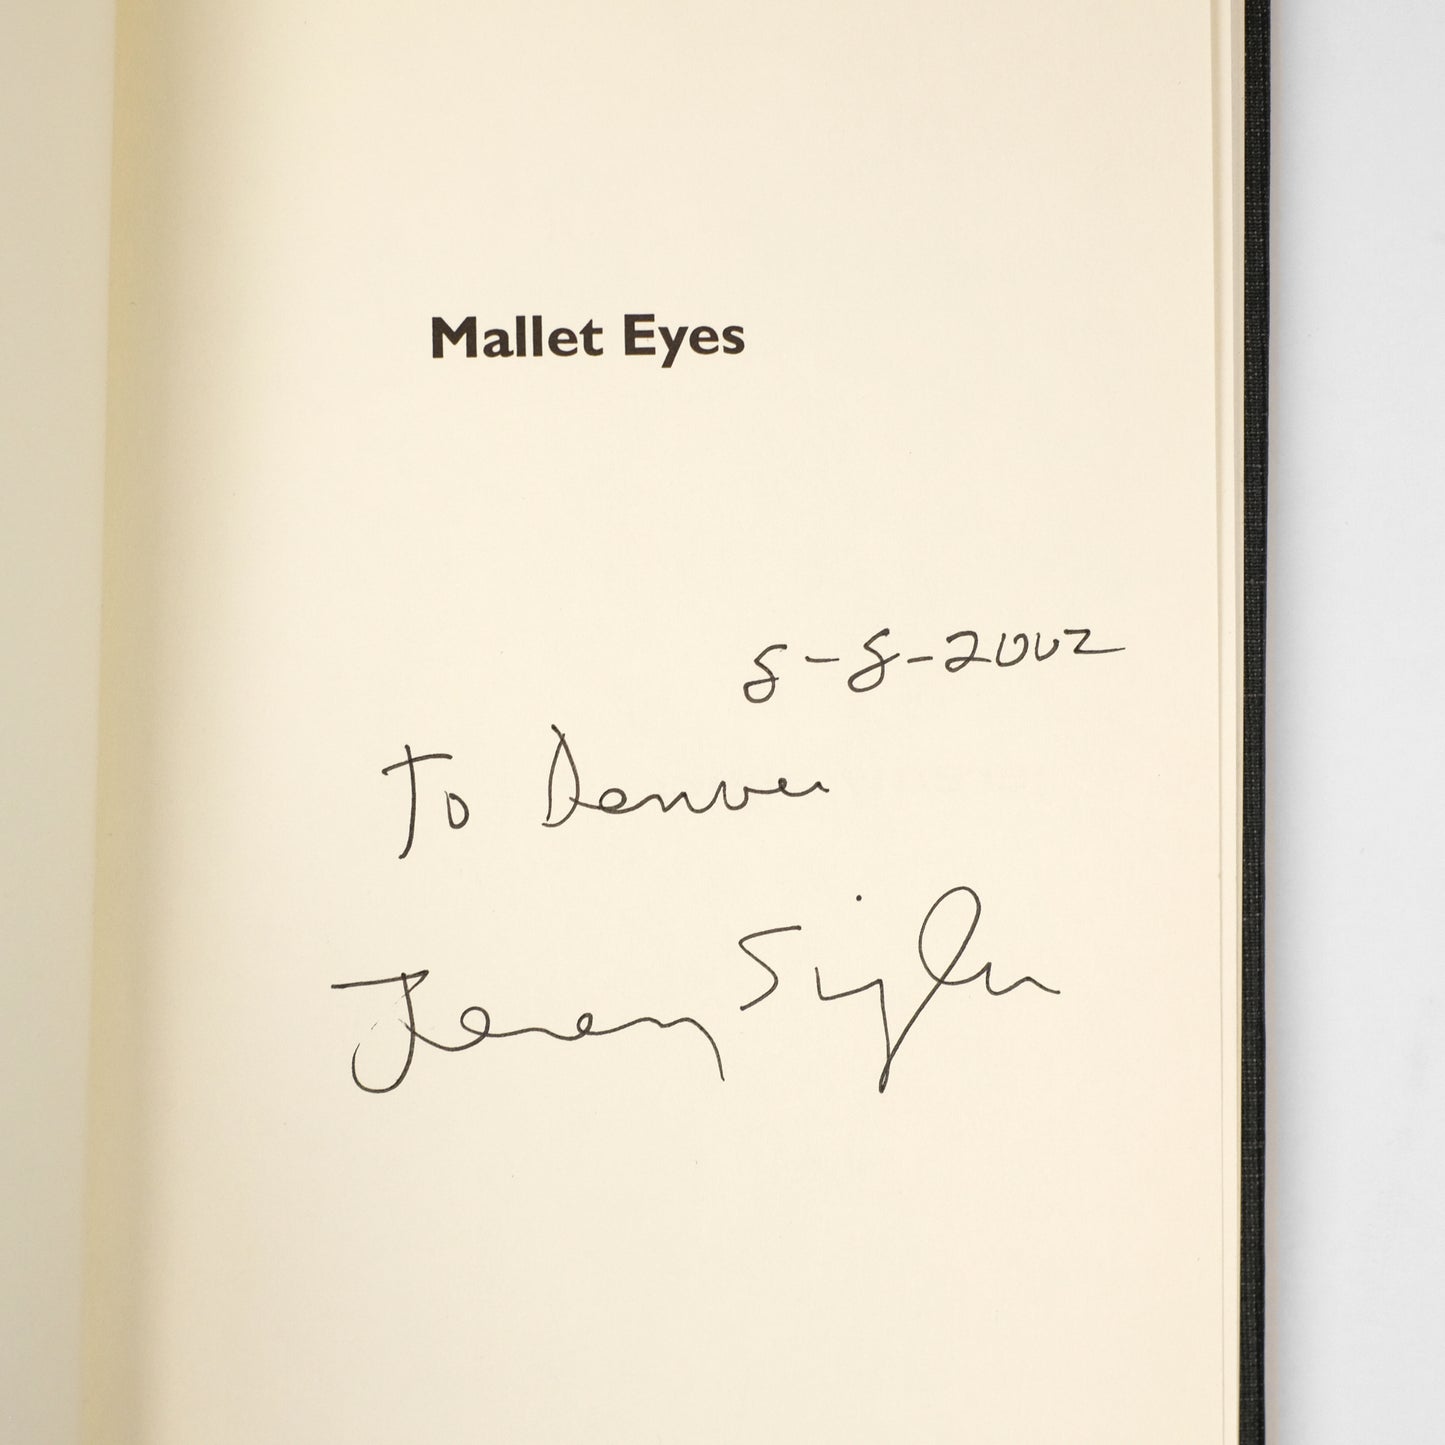 Mallet Eyes
8-8-2002
To Denver
Jeremy Sigler